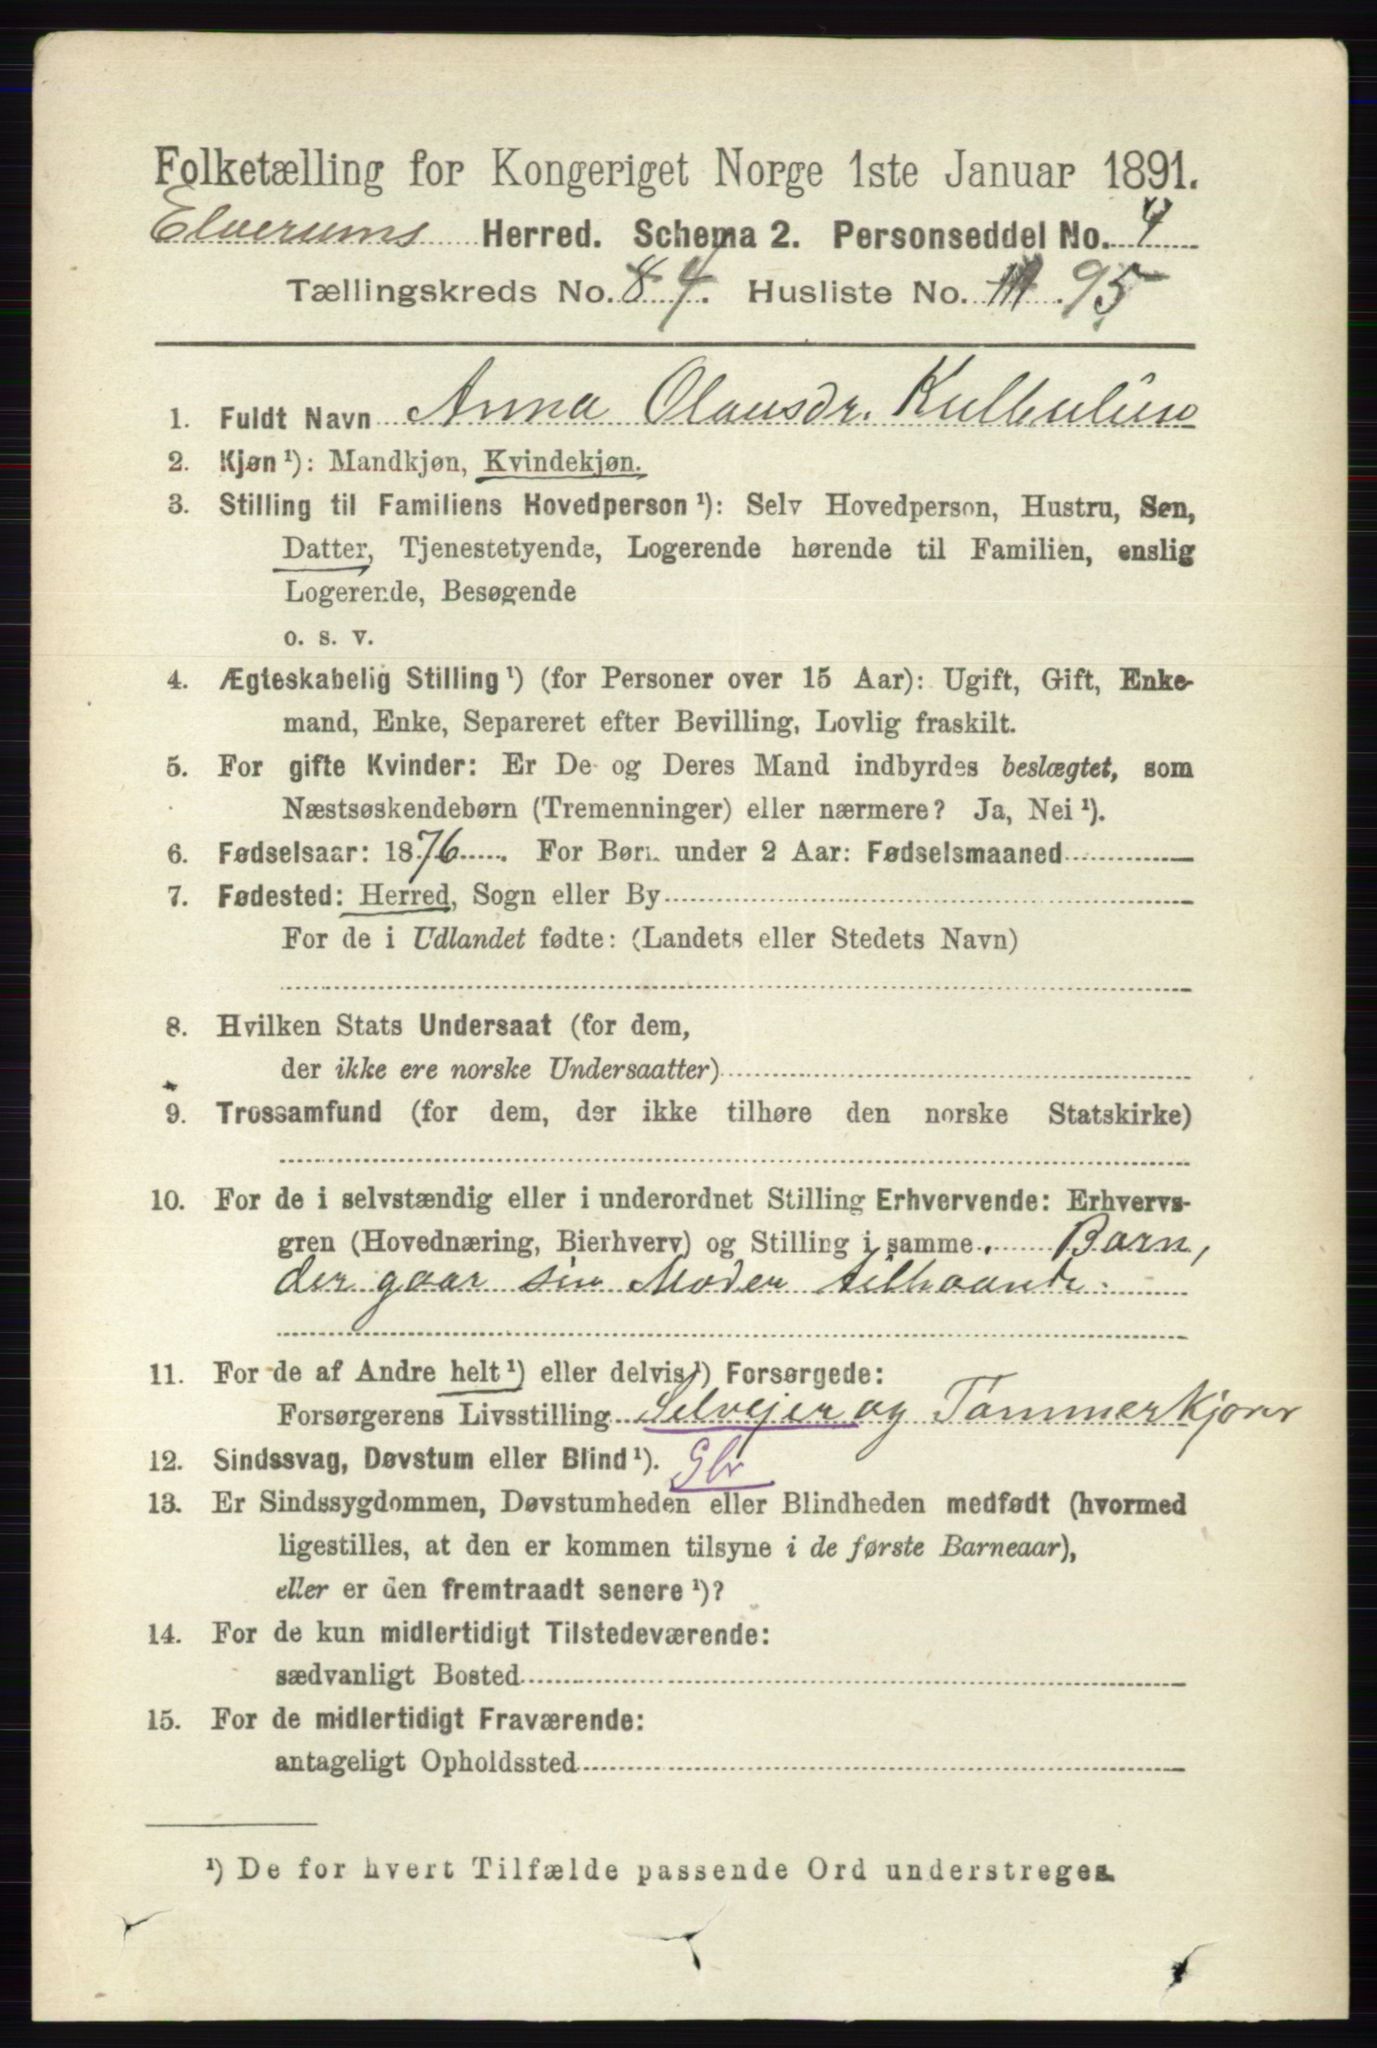 Folketælling for Kongeriget Norge 1ste Januar 1891.
Elverums Herred. Schema 2. Personseddel No. 4
Tællingskreds No. 8 4. Husliste No. 95
1. Fuldt Navn Anna Olausdr.
2. Kjøn ¹): Mandkjøn, Kvindekjøn.
3. Stilling til Familiens Hovedperson ¹): Selv Hovedperson, Hustru, Søn,
Datter, Tjenestetyende, Logerende hørende til Familien, enslig
Logerende, Besøgende
o. s. v.
4. Ægteskabelig Stilling ¹) (for Personer over 15 Aar): Ugift, Gift, Enke-
mand, Enke, Separeret efter Bevilling, Lovlig fraskilt.
5. For gifte Kvinder: Er De og Deres Mand indbyrdes beslægtet, som
Næstsøskendebørn (Tremenninger) eller nærmere? Ja, Nei ¹).
6. Fødselsaar: 1876. For Børn under 2 Aar: Fødselsmaaned
7. Fødested: Herred, Sogn eller By
For de i Udlandet fødte: (Landets eller Stedets Navn)
8. Hvilken Stats Undersaat (for dem,
der ikke ere norske Undersaatter)
9. Trossamfund (for dem, der ikke tilhøre den norske Statskirke)
10. For de i selvstændig eller i underordnet Stilling Erhvervende: Erhvervs-
gren (Hovednæring, Bierhverv) og Stilling i samme. Barn,
der gaar sin Moder tilhaande.
11. For de af Andre helt ¹) eller delvis ¹) Forsørgede:
Forsørgerens Livsstilling Selvejer og Tømmerkjører
12. Sindssvag, Døvstum eller Blind ¹). Gbr
13. Er Sindssygdommen, Døvstumheden eller Blindheden medfødt (hvormed
ligestilles, at den er kommen tilsyne i de første Barneaar),
eller er den fremtraadt senere ¹)?
14. For de kun midlertidigt Tilstedeværende:
sædvanligt Bosted
15. For de midlertidigt Fraværende:
antageligt Opholdssted
¹) De for hvert Tilfælde passende Ord understreges.